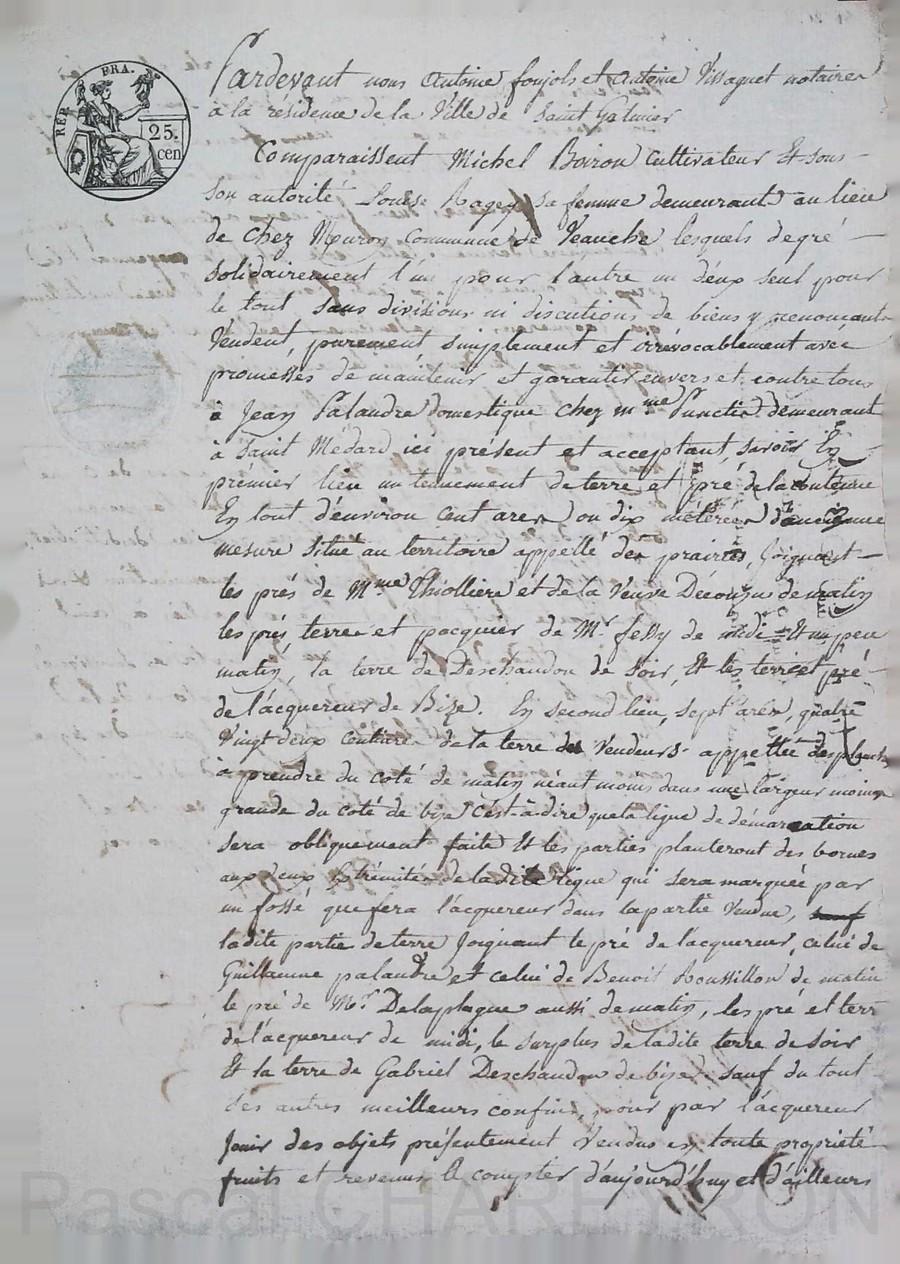 REP. FRA.
25.
cen
Pardevant nous Antoine foujols et Antoine Vissaguet notaires
à la résidence de la Ville de Saint Galmier
Comparaissent Michel Boiron Cultivateur Et sous
son autorité Louise Ragey sa femme demeurant au lieu
de chez Mouron Commune de Veauche lesquels de gré
solidairement l'un pour l'autre un deux seul pour
le tout sans divisions ni discutions de biens y renoncants
Vendent, purement simplement et irrévocablement avec
promesses de maintenir et garantir envers et contre tous
à Jean Palandre domestique chez mme demeurant
à Saint Médard ici présent et acceptant, savoir En
premier lieu un tenement de terre et pré de la contenue
En tout d'environ cent ares ou dix métérées d'ancienne
mesure situé au territoire appellé des prairies, Joignant
les prés de Mme Thiolliere et de la Veuve de matin
les prés terre et pacquier de Mr fessy de midi Et un peu
matin, la terre de Deschandon de soir, Et les terre et pré
de l'acquereur de Bize. En second lieu, sept ares, quatre
Vingt deux centiares de la terre des Vendeurs appellée des planches
à prendre du coté de matin néant moins dans une largeur moins
grande du coté de bize c'est-à-dire que la ligne de démarcation
sera obliquement faite Et les parties planteront des bornes
aux deux Extrémités de la dite ligne qui sera marquée par
un fossé que fera l'acquereur dans la partie Vendue,
ladite partie de terre Joignant le pré de l'acquereur, celui de
Guillaume palandre et celui de Benoit Roussillon de matin
le pré de Mr. Delaplagne aussi de matin, les pré et terre
de l'acquereur de midi, le surplus de ladite terre de soir
Et la terre de Gabriel Deschandon de bize sauf du tout
des autres meilleurs confins, pour par l'acquereur
Jouir des objets présentement Vendus en toute propriété
fruits et revenus à compter d'aujourd'huy et d'ailleurs
Pascal CHAREYRON